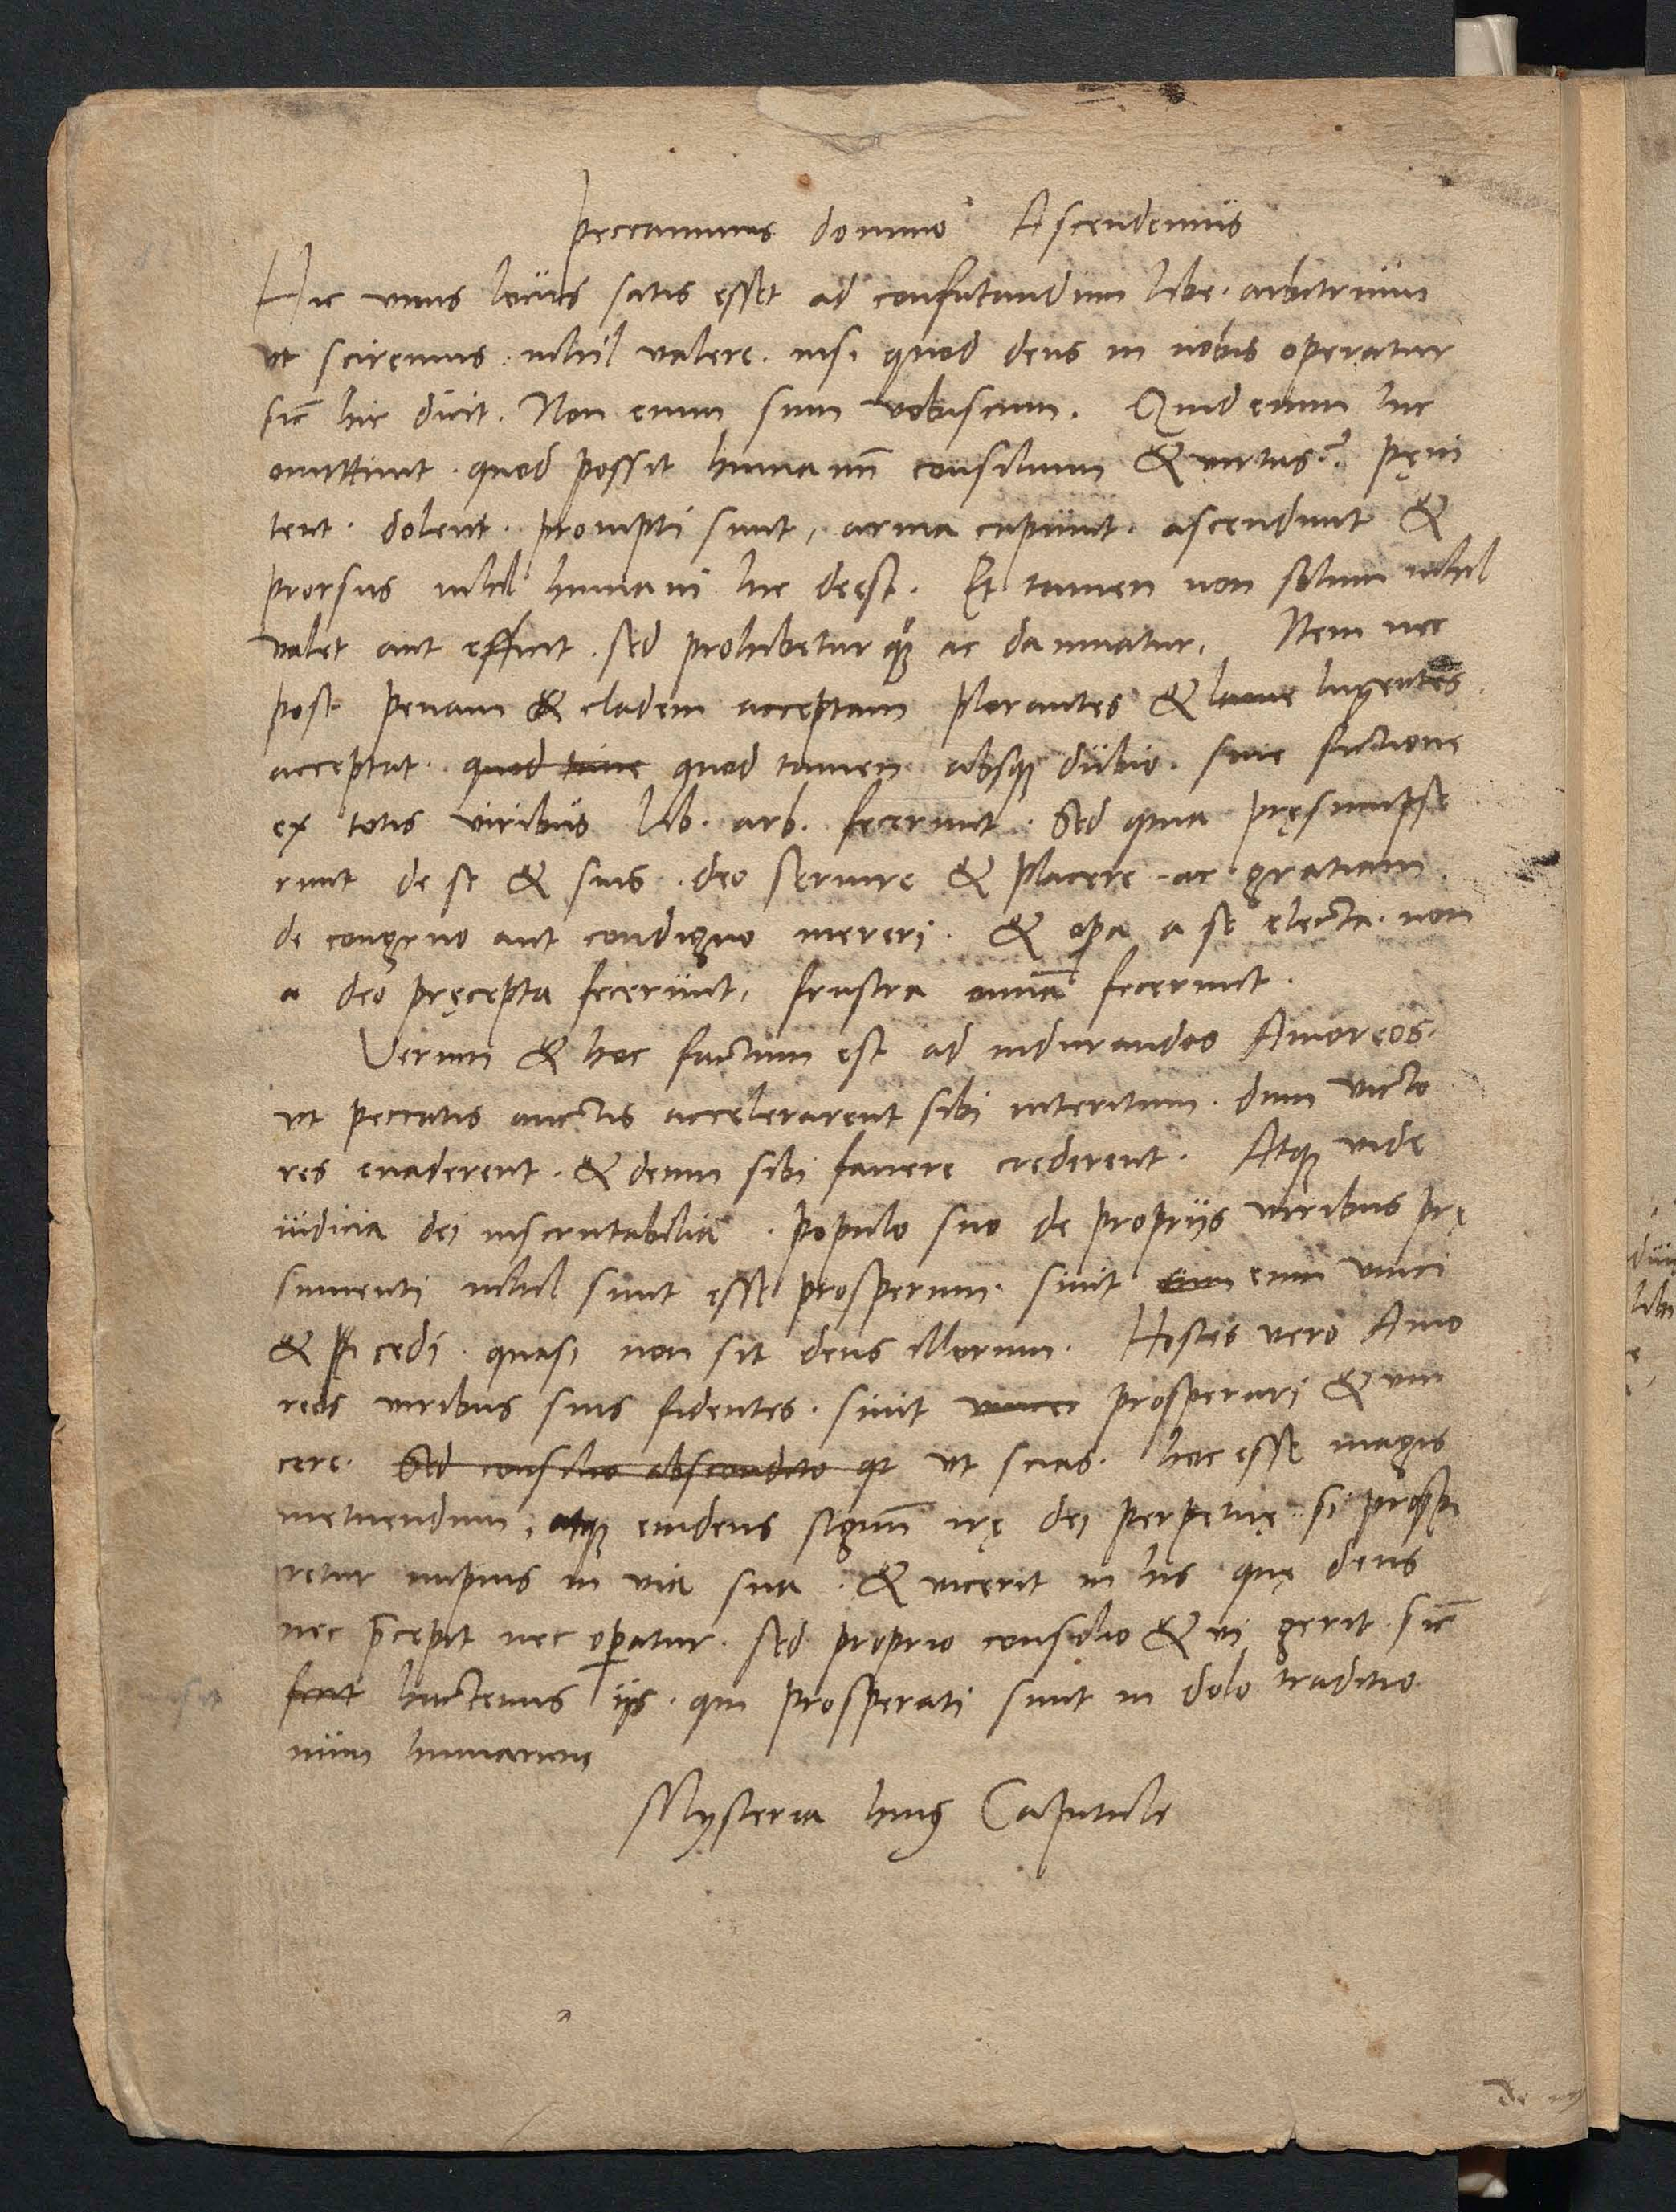 peccauimus domino Ascendemus
Hic vnus locus satis esset ad confutandum libe. arbitrium
vt sciremus. nihil valere. nisi quod deus in nobis operatur
sic̄ hic dicit. Non enim sum vobiscum. Quid enim hic
omittunt. quod possit humanū consilium & virtus? pęni
tent. dolent. prompti sunt, arma capiunt. ascendunt &
prorsus nihil humani hic deest. Et tamen non solum nihil
valet aut efficit. sed prohibetur quoq; ac damnatur. Item nec
post penam & cladem acceptam plorantes & lugentes.
acceptat. quod tame quod tamen absq; dubio. sine fictione
ex totis viribus lib. arb. fecerunt. Sed quia pręsumpse
runt de se & suis. deo seruire & placere. ac gratiam
de congruo aut condigno mereri. & opa a se electa. non
a deo pręcepta fecerunt, frustra omīa fecerunt.
Verum & hoc factum est ad indurandos Amoreos.
vt peccatis auctis accelerarent sibi interitum. dum victo
res euaderent. & deum sibi fauere crederent. Atq; vide
iudicia dei inscrutabilia. populo suo de propriis viribus prę
sumenti nihil sinit esse prosperum. sinit eum eum vinci
& cedi. quasi non sit deus illorum. Hostes vero Amo
reos viribus suis fidentes. sinit vincer prosperari & vin
cere. Sed consilio abscondito qt vt scias. hoc esse magis
metuendum, atq; euidens signū irę dei perpetuę. si prospe
retur impius in via sua. & vicerit in his quę deus
nec p̄cepit nec opatur. sed proprio consilio & vi gerit. sic̄
fecit hactenus iis. qui prosperati sunt in dolo traditio
num humanarum
Mysteria huius Capituli